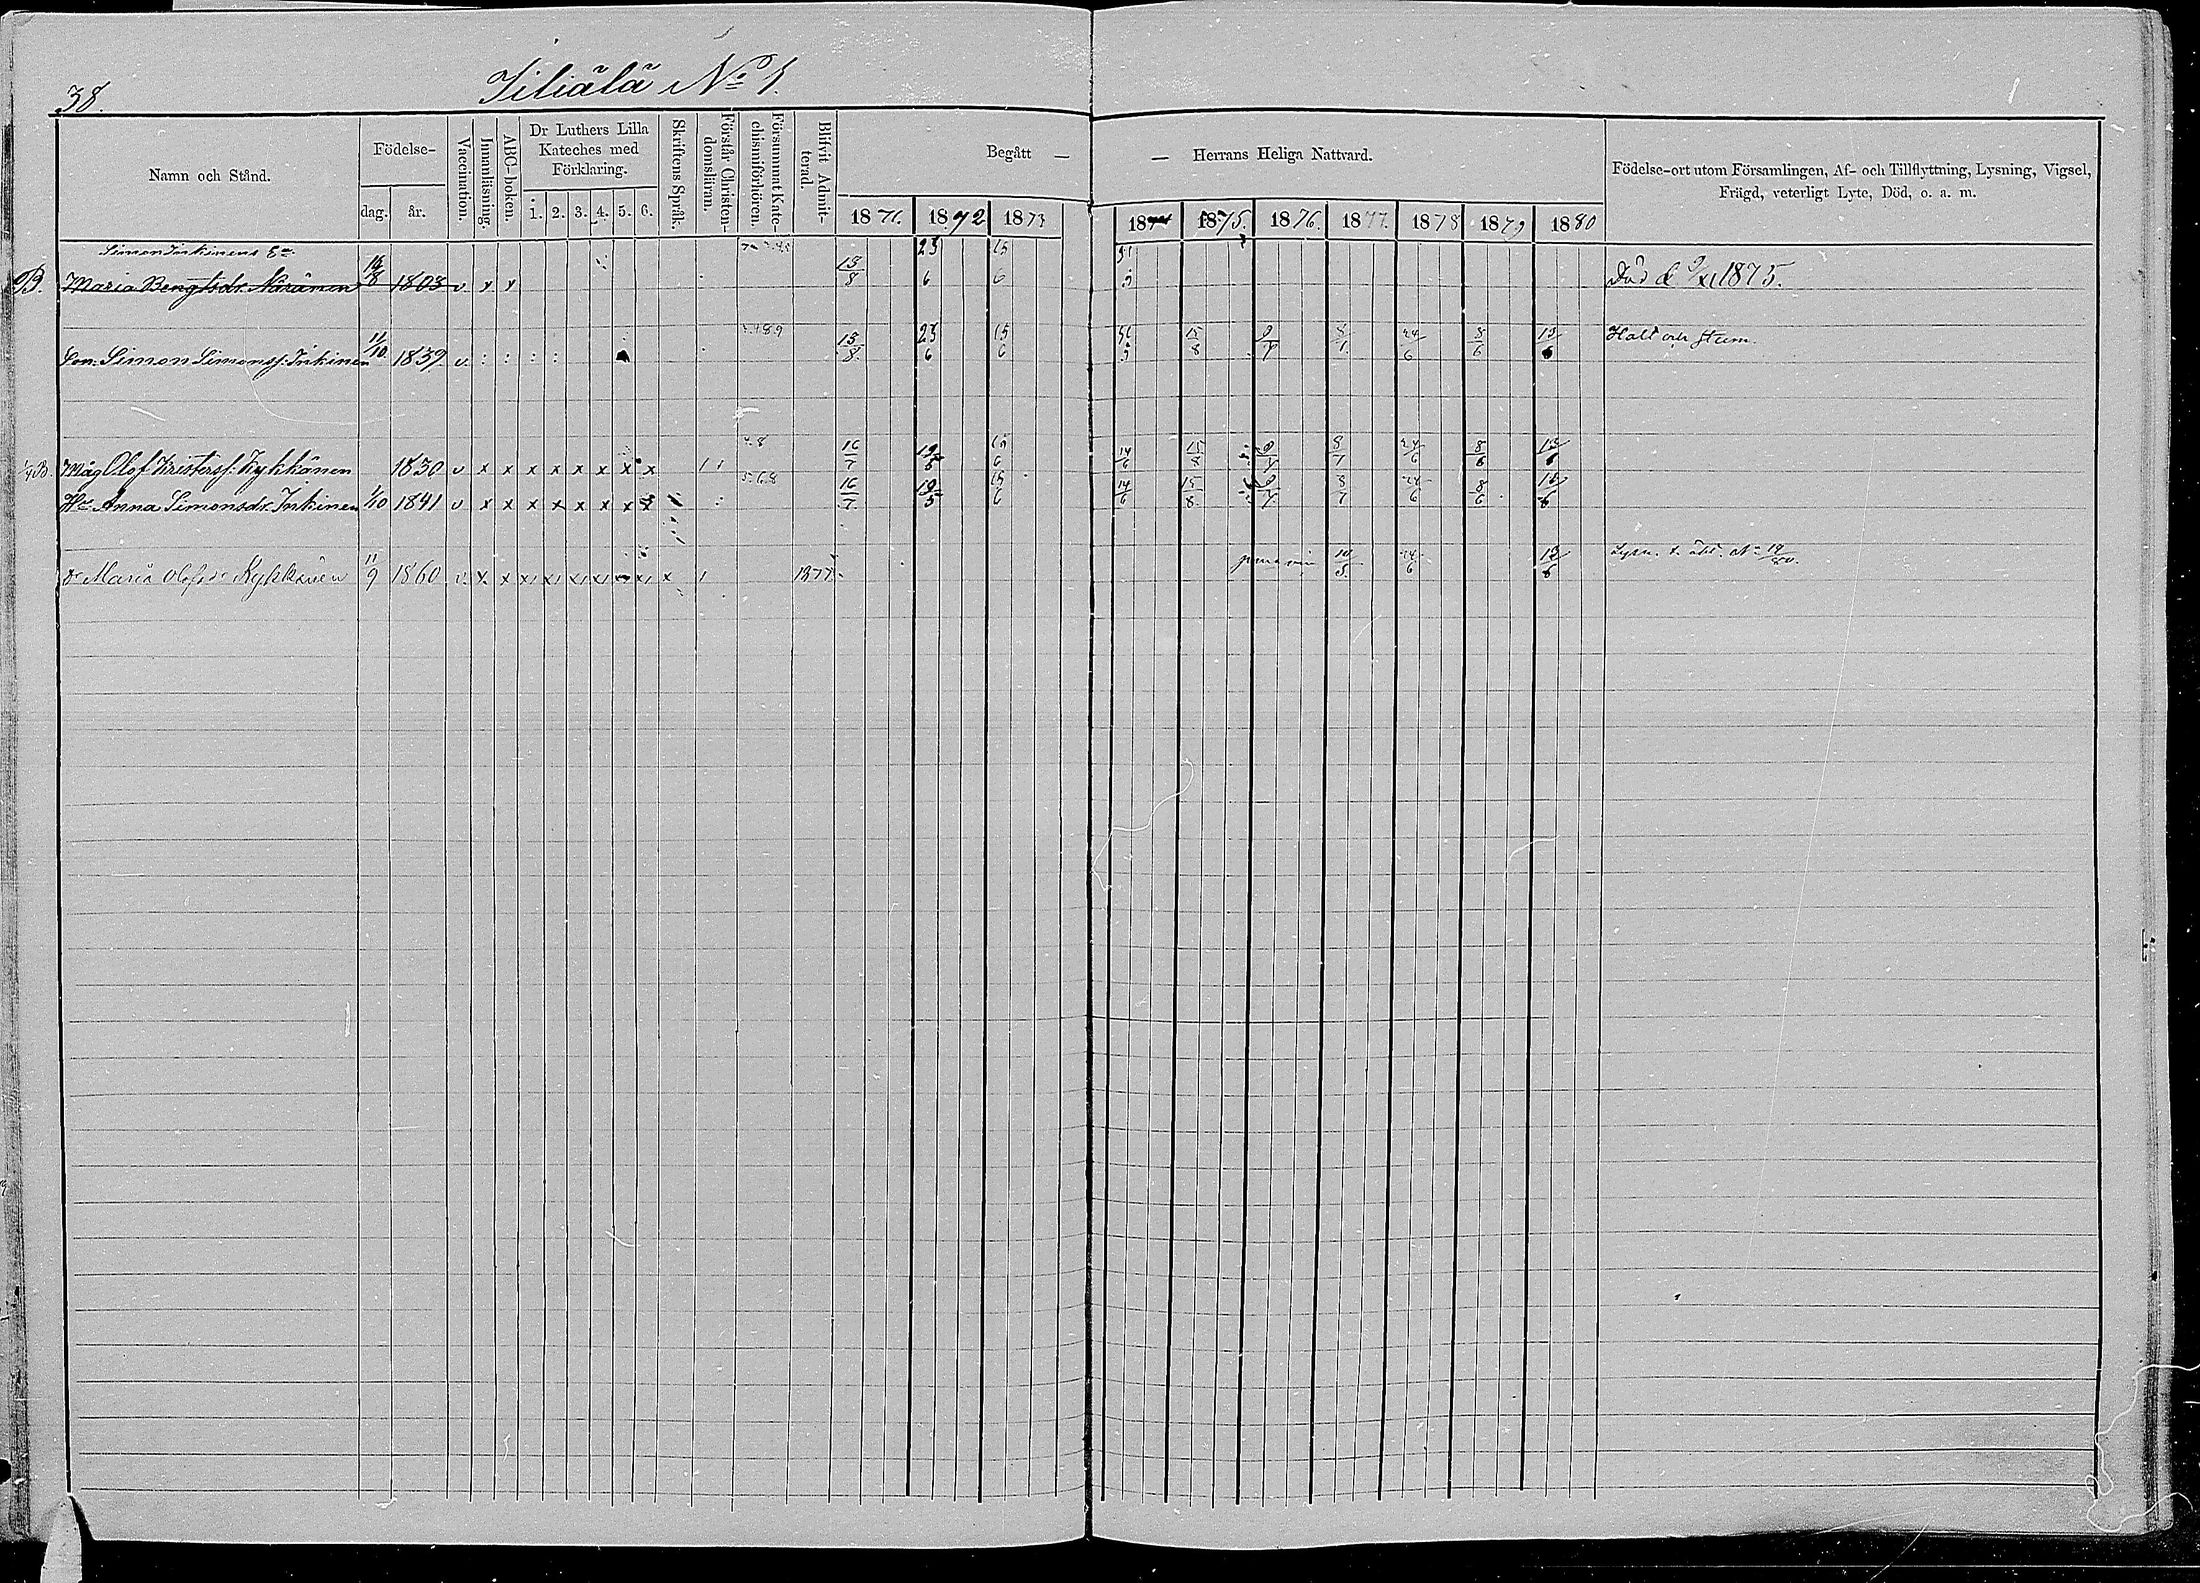 38.
Tiliälä No 1.
Namn och Stånd.
Födelse-
dag.
år.
Vaccination.
Innanläsning.
ABC-boken.
Dr Luthers Lilla Kateches med Förklaring.
1. 2. 3. 4. 5. 6.
Skriftens Språk.
Förstår Christendomsläran.
Försummat Katechismiförhören.
Blifvit Admitterad.
Begått — — Herrans Heliga Nattvard.
1871. 1872 1873 1874 1875. 1876. 1877. 1878 1879 1880
Födelse-ort utom Församlingen, Af- och Tillflyttning, Lysning, Vigsel,
Frägd, veterligt Lyte, Död, o. a. m.
Simon Inkinens Ea
B. Maria Bengtsdr 1803 v x x 13/8 23/6 15/6 Död d. 9/XI 1875.
Son: Simon Simonss: Inkinen 11/10 1839 v. : : : : 13/8 23/6 15/6 15/8 9/7 8/7 24/6 8/6 13/6 Halt och stum.
Måg Olof Kristerss: Kykkänen 1830 v x x x x x x x x 16/7 19/5 15/6 14/6 15/8 9/7 8/7 24/6 8/6 13/6
Hu Anna Simonsdr Inkinen 1/10 1841 v x x x x x x x x 16/7 19/5 15/6 14/6 15/8 9/7 8/7 24/6 8/6 13/6
dr Maria Olofsdr Kykkänen 11/9 1860 v. x x x x x x x x x 1877 24/6 13/6